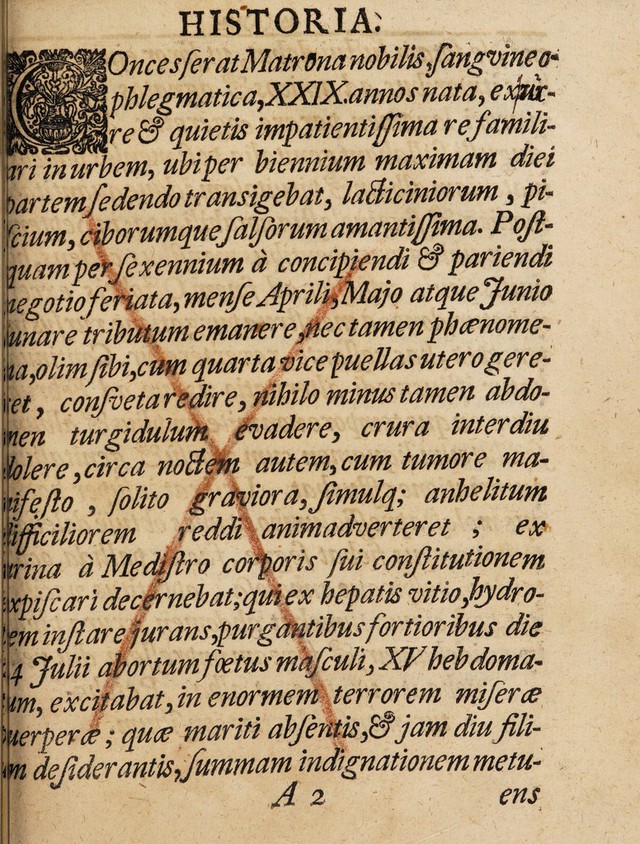 HISTORIA.
COncesserat Matrona nobilis, sangvineo-
phlegmatica, XXIX. annos nata, ex
re & quietis impatientissima re famili-
ari in urbem, ubi per biennium maximam diei
partem sedendo transigebat, lacticiniorum, pi-
scium, ciborumque salsorum amantissima. Post-
quam per sexennium à concipiendi & pariendi
negotio feriata, mense Aprili, Majo atque Junio
lunare tributum emanere, nec tamen phænome-
na, olim sibi, cum quarta vice puellas utero gere-
ret, consveta redire, nihilo minus tamen abdo-
men turgidulum evadere, crura interdiu
dolere, circa noctem autem, cum tumore ma-
nifesto, solito graviora, simulq; anhelitum
difficiliorem reddi animadverteret; ex
urina à Medistro corporis sui constitutionem
expiscari decernebat; qui ex hepatis vitio, hydro-
pem instare jurans, purgantibus fortioribus die
4 Julii abortum fœtus masculi, XV hebdoma-
um, excitabat, in enormem terrorem miseræ
puerperæ; quæ mariti absentis, & jam diu fili-
um desiderantis, summam indignationem metu-
A 2 ens